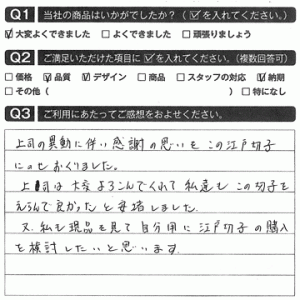 Q1 当社の商品はいかがでしたか？（☑を入れてください。）
☑大変よくできました □よくできました □頑張りましょう
Q2 ご満足いただけた項目に☑を入れてください。（複数回答可）
□価格 ☑品質 ☑デザイン □商品 □スタッフの対応 ☑納期
□その他（ ）□特になし
Q3 ご利用にあたってご感想をおよせください。
上司の異動に伴い感謝の思いをこの江戸切子
にのせおくりました。
上司は大変よろこんでくれて私達もこの切子を
えらんで良かったと安堵しました。
又、私も現品を見て自分用に江戸切子の購入
を検討したいと思います